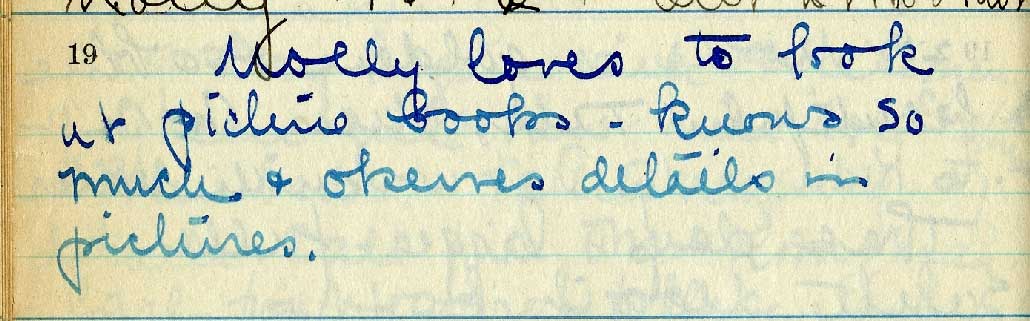 Molly
19 Molly loves to look
at picture books - knows so
much & okerves details in
pictures.